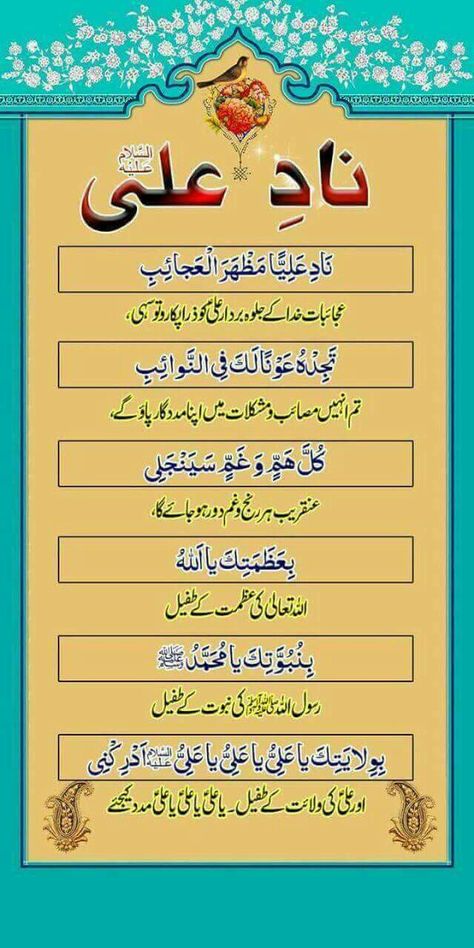 نادِ علی علیہ السلام
نَادِ عَلِيًّا مَظْهَرَ الْعَجَائِبِ
عجائبات خدا کے جلوہ بردار علیؑ کو ذرا پکارو تو سہی،
تَجِدْهُ عَوْنًا لَكَ فِي النَّوَائِبِ
تم انہیں مصائب و مشکلات میں اپنا مددگار پاؤ گے،
كُلَّ هَمٍّ وَ غَمٍّ سَيَنْجَلِي
عنقریب ہر رنج و غم دور ہو جائے گا،
بِعَظَمَتِكَ يَا اَللهُ
اللہ تعالیٰ کی عظمت کے طفیل
بِنُبُوَّتِكَ يَا مُحَمَّدُ ﷺ
رسول اللہ ﷺ کی نبوت کے طفیل
بِوِلَايَتِكَ يَا عَلِيُّ يَا عَلِيُّ يَا عَلِيُّ علیہ السلام اَدْرِكْنِي
اور علیؑ کی ولائت کے طفیل۔ یا علیؑ یا علیؑ یا علیؑ مدد کیجئے